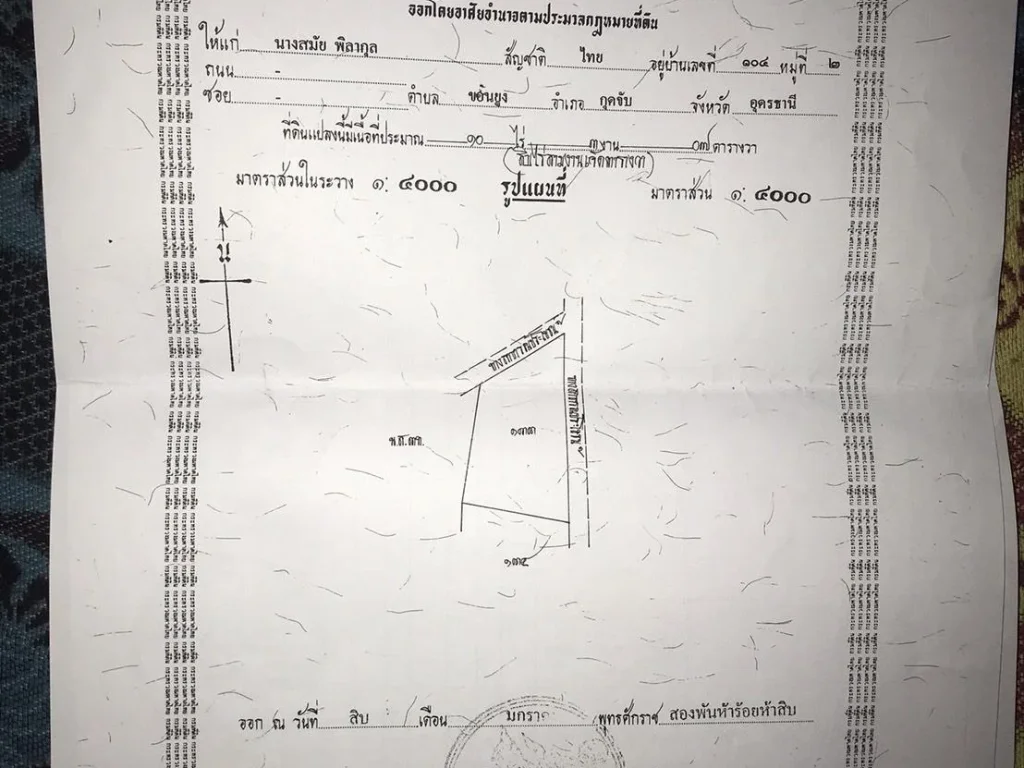 ออกโดยอาศัยอำนาจตามประมวลกฎหมายที่ดิน
ให้แก่ นางสมัย พิลากุล สัญชาติ ไทย อยู่บ้านเลขที่ ๑๐๔ หมู่ที่ ๒
ถนน -
ซอย - ตำบล ขอนยูง อำเภอ กุดจับ จังหวัด อุดรธานี
ที่ดินแปลงนี้มีเนื้อที่ประมาณ ๑๐ ไร่ ๓ งาน ๐๗ ตารางวา
(สิบไร่สามงานเจ็ดตารางวา)
มาตราส่วนในระวาง ๑: ๔๐๐๐ รูปแผนที่ มาตราส่วน ๑: ๔๐๐๐
น
ทางสาธารณประโยชน์
ทางสาธารณประโยชน์
๑๓๓
น.ส.๓ก.
๑๓๔
ออก ณ วันที่ สิบ เดือน มกรา พุทธศักราช สองพันห้าร้อยห้าสิบ